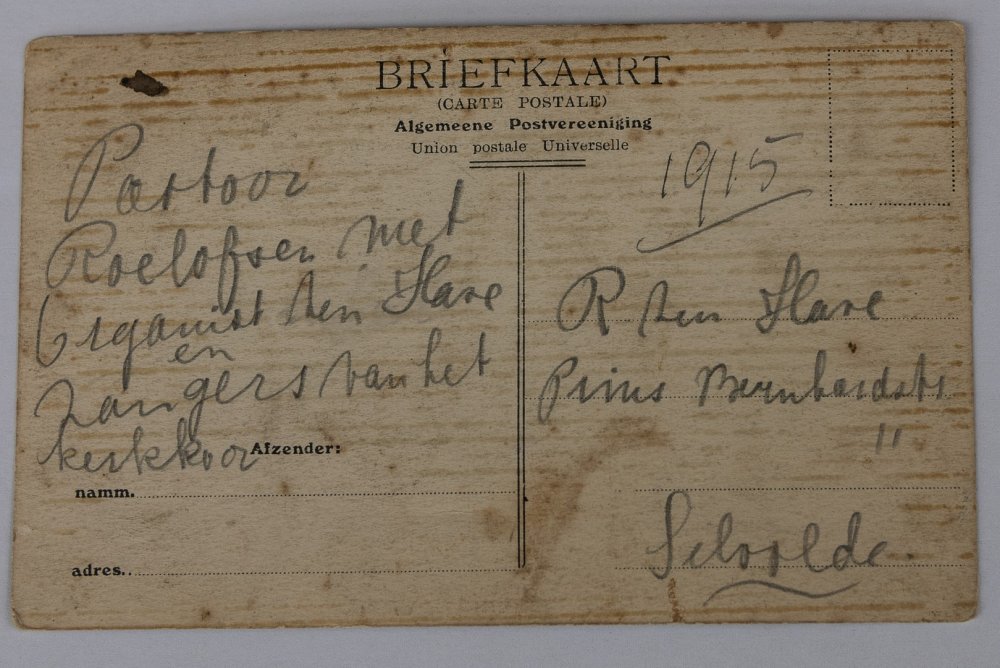 BRIEFKAART
(CARTE POSTALE)
Algemeene Postvereeniging
Union postale Universelle
Pastoor
Roelofsen met
Organist ten Have
en
zangers van het
kerkkoor
Afzender:
namm.
adres.
1915
R ten Have
Prins Bernhardstr
11
Silvolde.